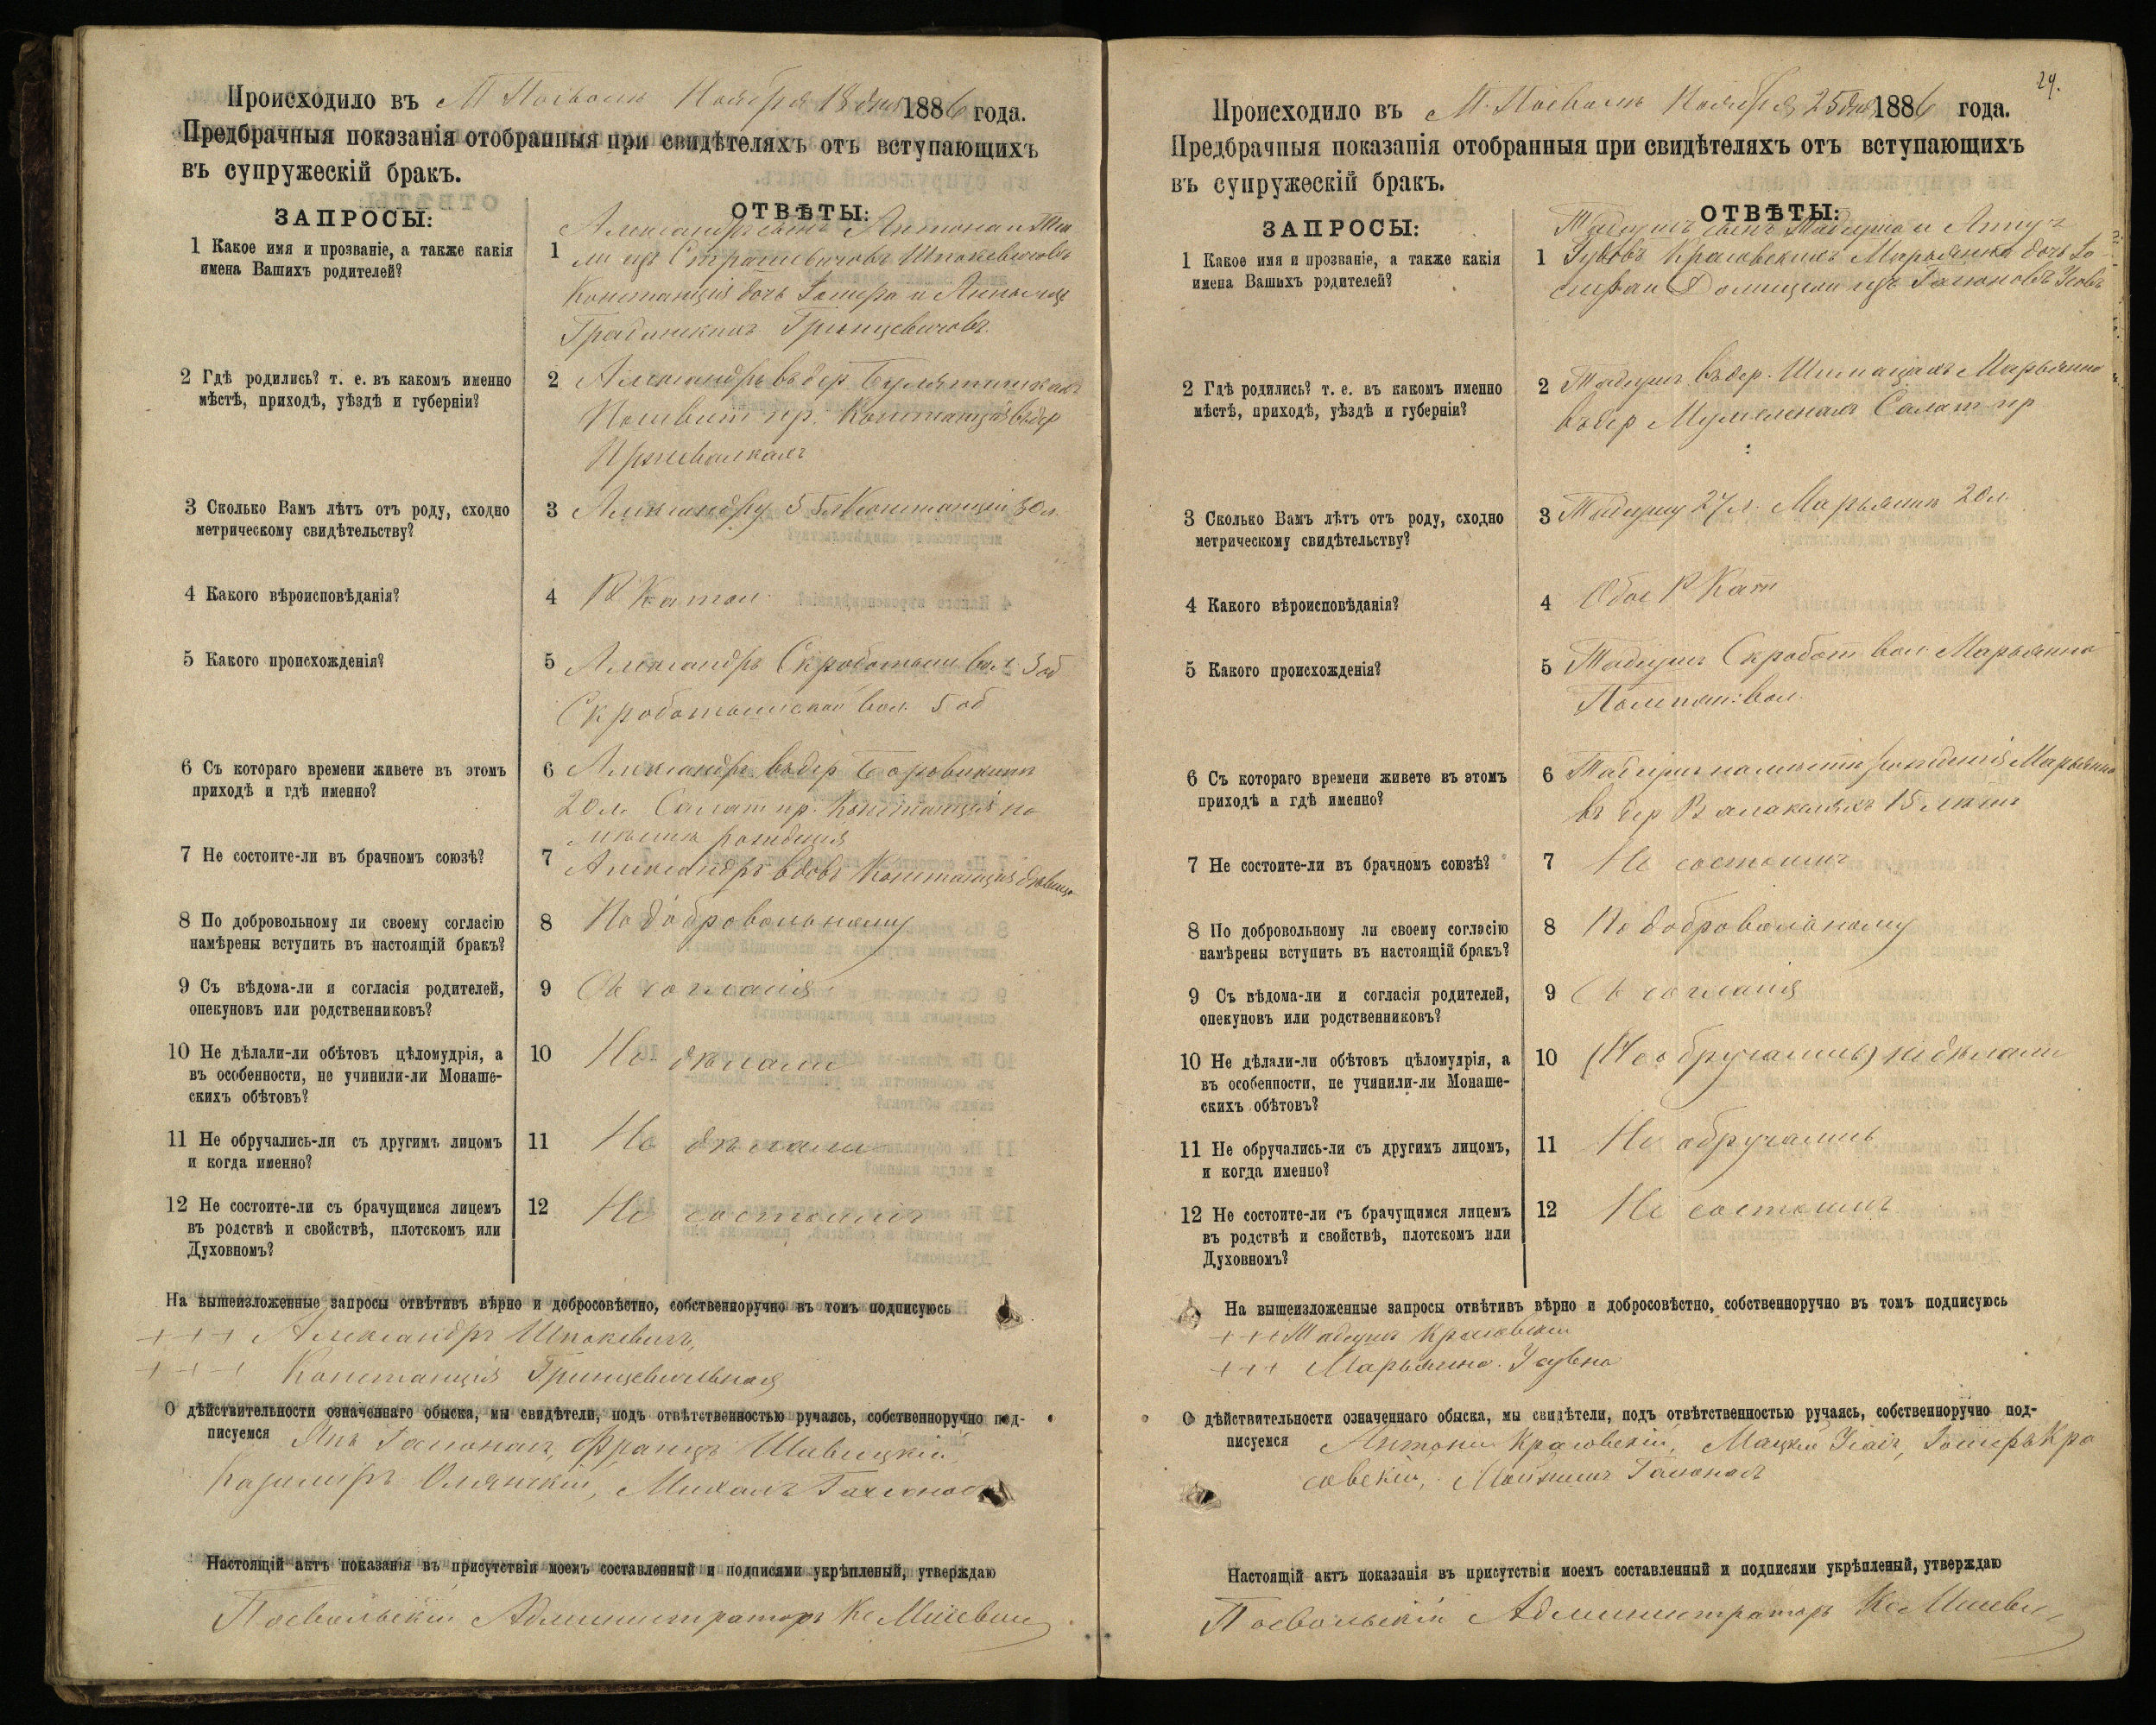 Происходило въ М Посволь Ноября 18 дня 1886 года.
Предбрачныя показанія отобранныя при свидѣтеляхъ отъ вступающихъ
въ супружескій бракъ.
ЗАПРОСЫ:
ОТВѢТЫ:
1 Какое имя и прозваніе, а также какія
имена Вашихъ родителей?
1 Александръ сынъ Антона и
изъ Страшевичовъ Шпокевичовъ
Констанція дочь Іосифа и Анны изъ
Гринцевичовъ.
2 Гдѣ родились? т. е. въ какомъ именно
мѣстѣ, приходѣ, уѣздѣ и губерніи?
2 Александръ въ дер
пр. Констанція въ дер
3 Сколько Вамъ лѣтъ отъ роду, сходно
метрическому свидѣтельству?
3 Александру 55 Констанціи 30 л.
4 Какого вѣроисповѣданія?
4 Р Катол.
5 Какого происхожденія?
5 Александръ вол
вол. 5 об
6 Съ котораго времени живете въ этомъ
приходѣ и гдѣ именно?
6 Александръ въ дер
20 л. Салат пр. Констанція по
мѣсту рожденія
7 Не состоите-ли въ брачномъ союзѣ?
7 Александръ вдовъ Констанція дѣвица
8 По добровольному ли своему согласію
намѣрены вступить въ настоящій бракъ?
8 По добровольному
9 Съ вѣдома-ли и согласія родителей,
опекуновъ или родственниковъ?
9 Съ согласія
10 Не дѣлали-ли обѣтовъ цѣломудрія, а
въ особенности, не учинили-ли Монаше-
скихъ обѣтовъ?
10 Не дѣлали
11 Не обручались-ли съ другимъ лицомъ
и когда именно?
11 Не дѣлали
12 Не состоите-ли съ брачущимся лицемъ
въ родствѣ и свойствѣ, плотскомъ или
Духовномъ?
12 Не состоимъ
На вышеизложенные запросы отвѣтивъ вѣрно и добросовѣстно, собственноручно въ томъ подписуюсь
+++ Александръ Шпокевичъ,
+++ Констанція Гринцевичовна
О дѣйствительности означеннаго обыска, мы свидѣтели, подъ отвѣтственностью ручаясь, собственноручно под-
писуемся Янъ Гасюнасъ, Францъ Шавецкій
Казимиръ Олянскій, Михалъ
Настоящій актъ показанія въ присутствіи моемъ составленный и подписями укрѣпленый, утверждаю
Посвольскій Администраторъ Кс
29.
Происходило въ М. Посволь Ноября 25 дня 1886 года.
Предбрачныя показанія отобранныя при свидѣтеляхъ отъ вступающихъ
въ супружескій бракъ.
ЗАПРОСЫ:
ОТВѢТЫ:
1 Какое имя и прозваніе, а также какія
имена Вашихъ родителей?
1 Тадеушъ сынъ Тадеуша и Анны
Красовскихъ Марьянна дочь Іо
сифа и Доминели изъ Гасюновъ Усовъ
2 Гдѣ родились? т. е. въ какомъ именно
мѣстѣ, приходѣ, уѣздѣ и губерніи?
2 Тадеушъ въ дер. Марьянна
въ дер Салат пр
3 Сколько Вамъ лѣтъ отъ роду, сходно
метрическому свидѣтельству?
3 Тадеушу 27 л. Марьяннѣ 20 л.
4 Какого вѣроисповѣданія?
4 Обое Р Кат
5 Какого происхожденія?
5 Тадеушъ Скробот вол. Марьянна
вол.
6 Съ котораго времени живете въ этомъ
приходѣ и гдѣ именно?
6 Тадеушъ по мѣсту рожденія Марьянна
въ дер 15 лѣтъ
7 Не состоите-ли въ брачномъ союзѣ?
7 Не состоимъ
8 По добровольному ли своему согласію
намѣрены вступить въ настоящій бракъ?
8 По добровольному
9 Съ вѣдома-ли и согласія родителей,
опекуновъ или родственниковъ?
9 Съ согласія
10 Не дѣлали-ли обѣтовъ цѣломудрія, а
въ особенности, не учинили-ли Монаше-
скихъ обѣтовъ?
10 (Не обручались) не дѣлали
11 Не обручались-ли съ другимъ лицомъ,
и когда именно?
11 Не обручались
12 Не состоите-ли съ брачущимся лицемъ
въ родствѣ и свойствѣ, плотскомъ или
Духовномъ?
12 Не состоимъ
На вышеизложенные запросы отвѣтивъ вѣрно и добросовѣстно, собственноручно въ томъ подписуюсь
+++ Тадеушъ Красовскій
+++ Марьянна Усувна
О дѣйствительности означеннаго обыска, мы свидѣтели, подъ отвѣтственностью ручаясь, собственноручно под-
писуемся Антони Красовскій, Мацкей Іосифъ Кра
совскій,
Настоящій актъ показанія въ присутствіи моемъ составленный и подписями укрѣпленый, утверждаю
Посвольскій Администраторъ Кс